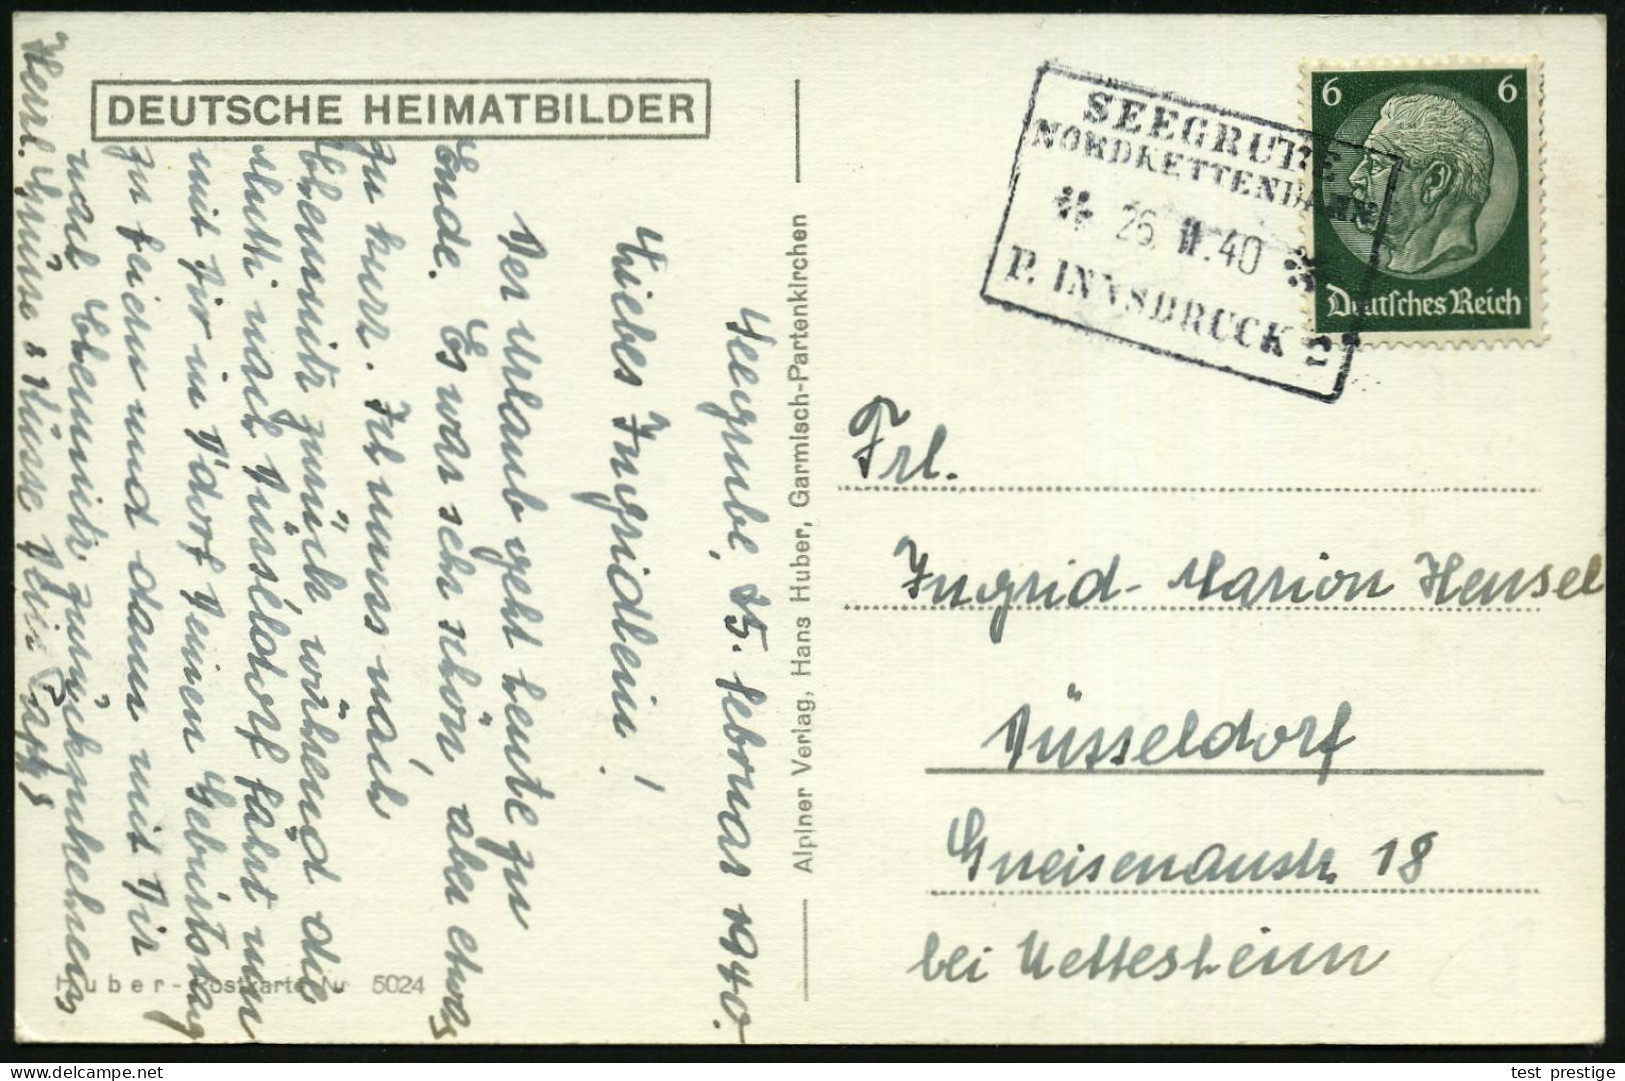 DEUTSCHE HEIMATBILDER
Seegrube, 25. Februar 1940.
Liebes Ingridlein!
Der Urlaub geht heute zu
Ende. Es war sehr schön, aber etwas
zu kurz. Ich muss nach
Chemnitz zurück, während die
Mutti nach Düsseldorf fährt um
mit Dir in D'dorf Deinen Geburtstag
zu feiern und dann mit Dir
nach Chemnitz zurückzukehren.
Herzl. Grüsse & Küsse Dein Pappi
Huber-Postkarte Nr 5024
Alpiner Verlag, Hans Huber, Garmisch-Partenkirchen
SEEGRUBE
NORDKETTENBAHN
26. II. 40
P. INNSBRUCK 2
6 6
Deutsches Reich
Frl.
Ingrid-Marion Hensel
Düsseldorf
Gneisenaustr. 18
bei
test prestige